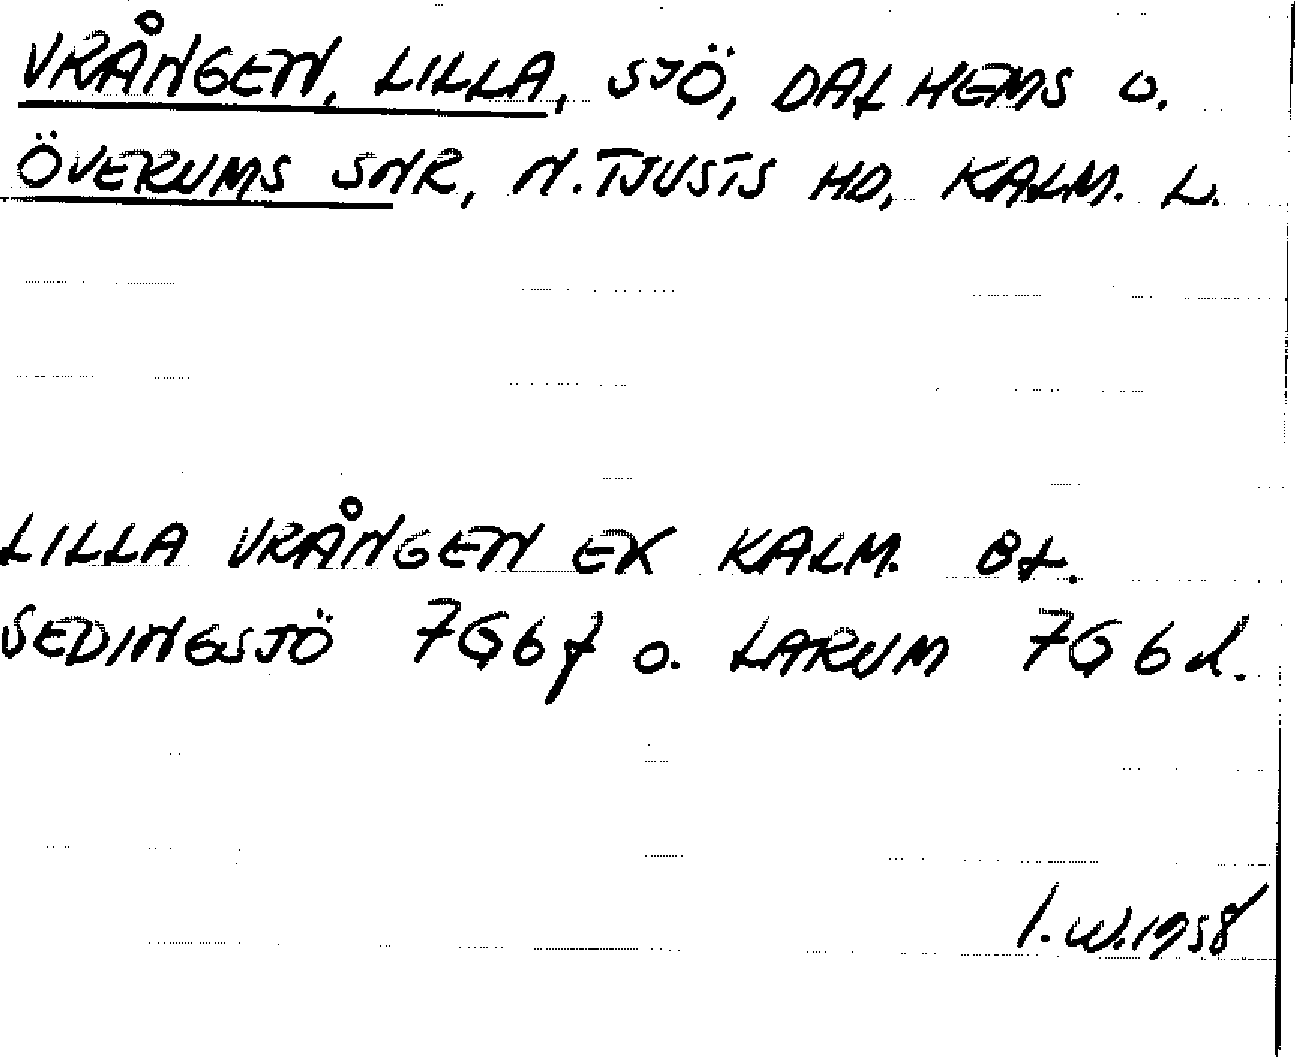 VRÅNGEN, LILLA, SJÖ, DALHEMS O.
ÖVERUMS SNR, N. TJUSTS HD, KALM. L.
LILLA VRÅNGEN EK KALM. BL.
SEDINGSJÖ 7G6f O. LARUM 7G6d.
I.W. 1958